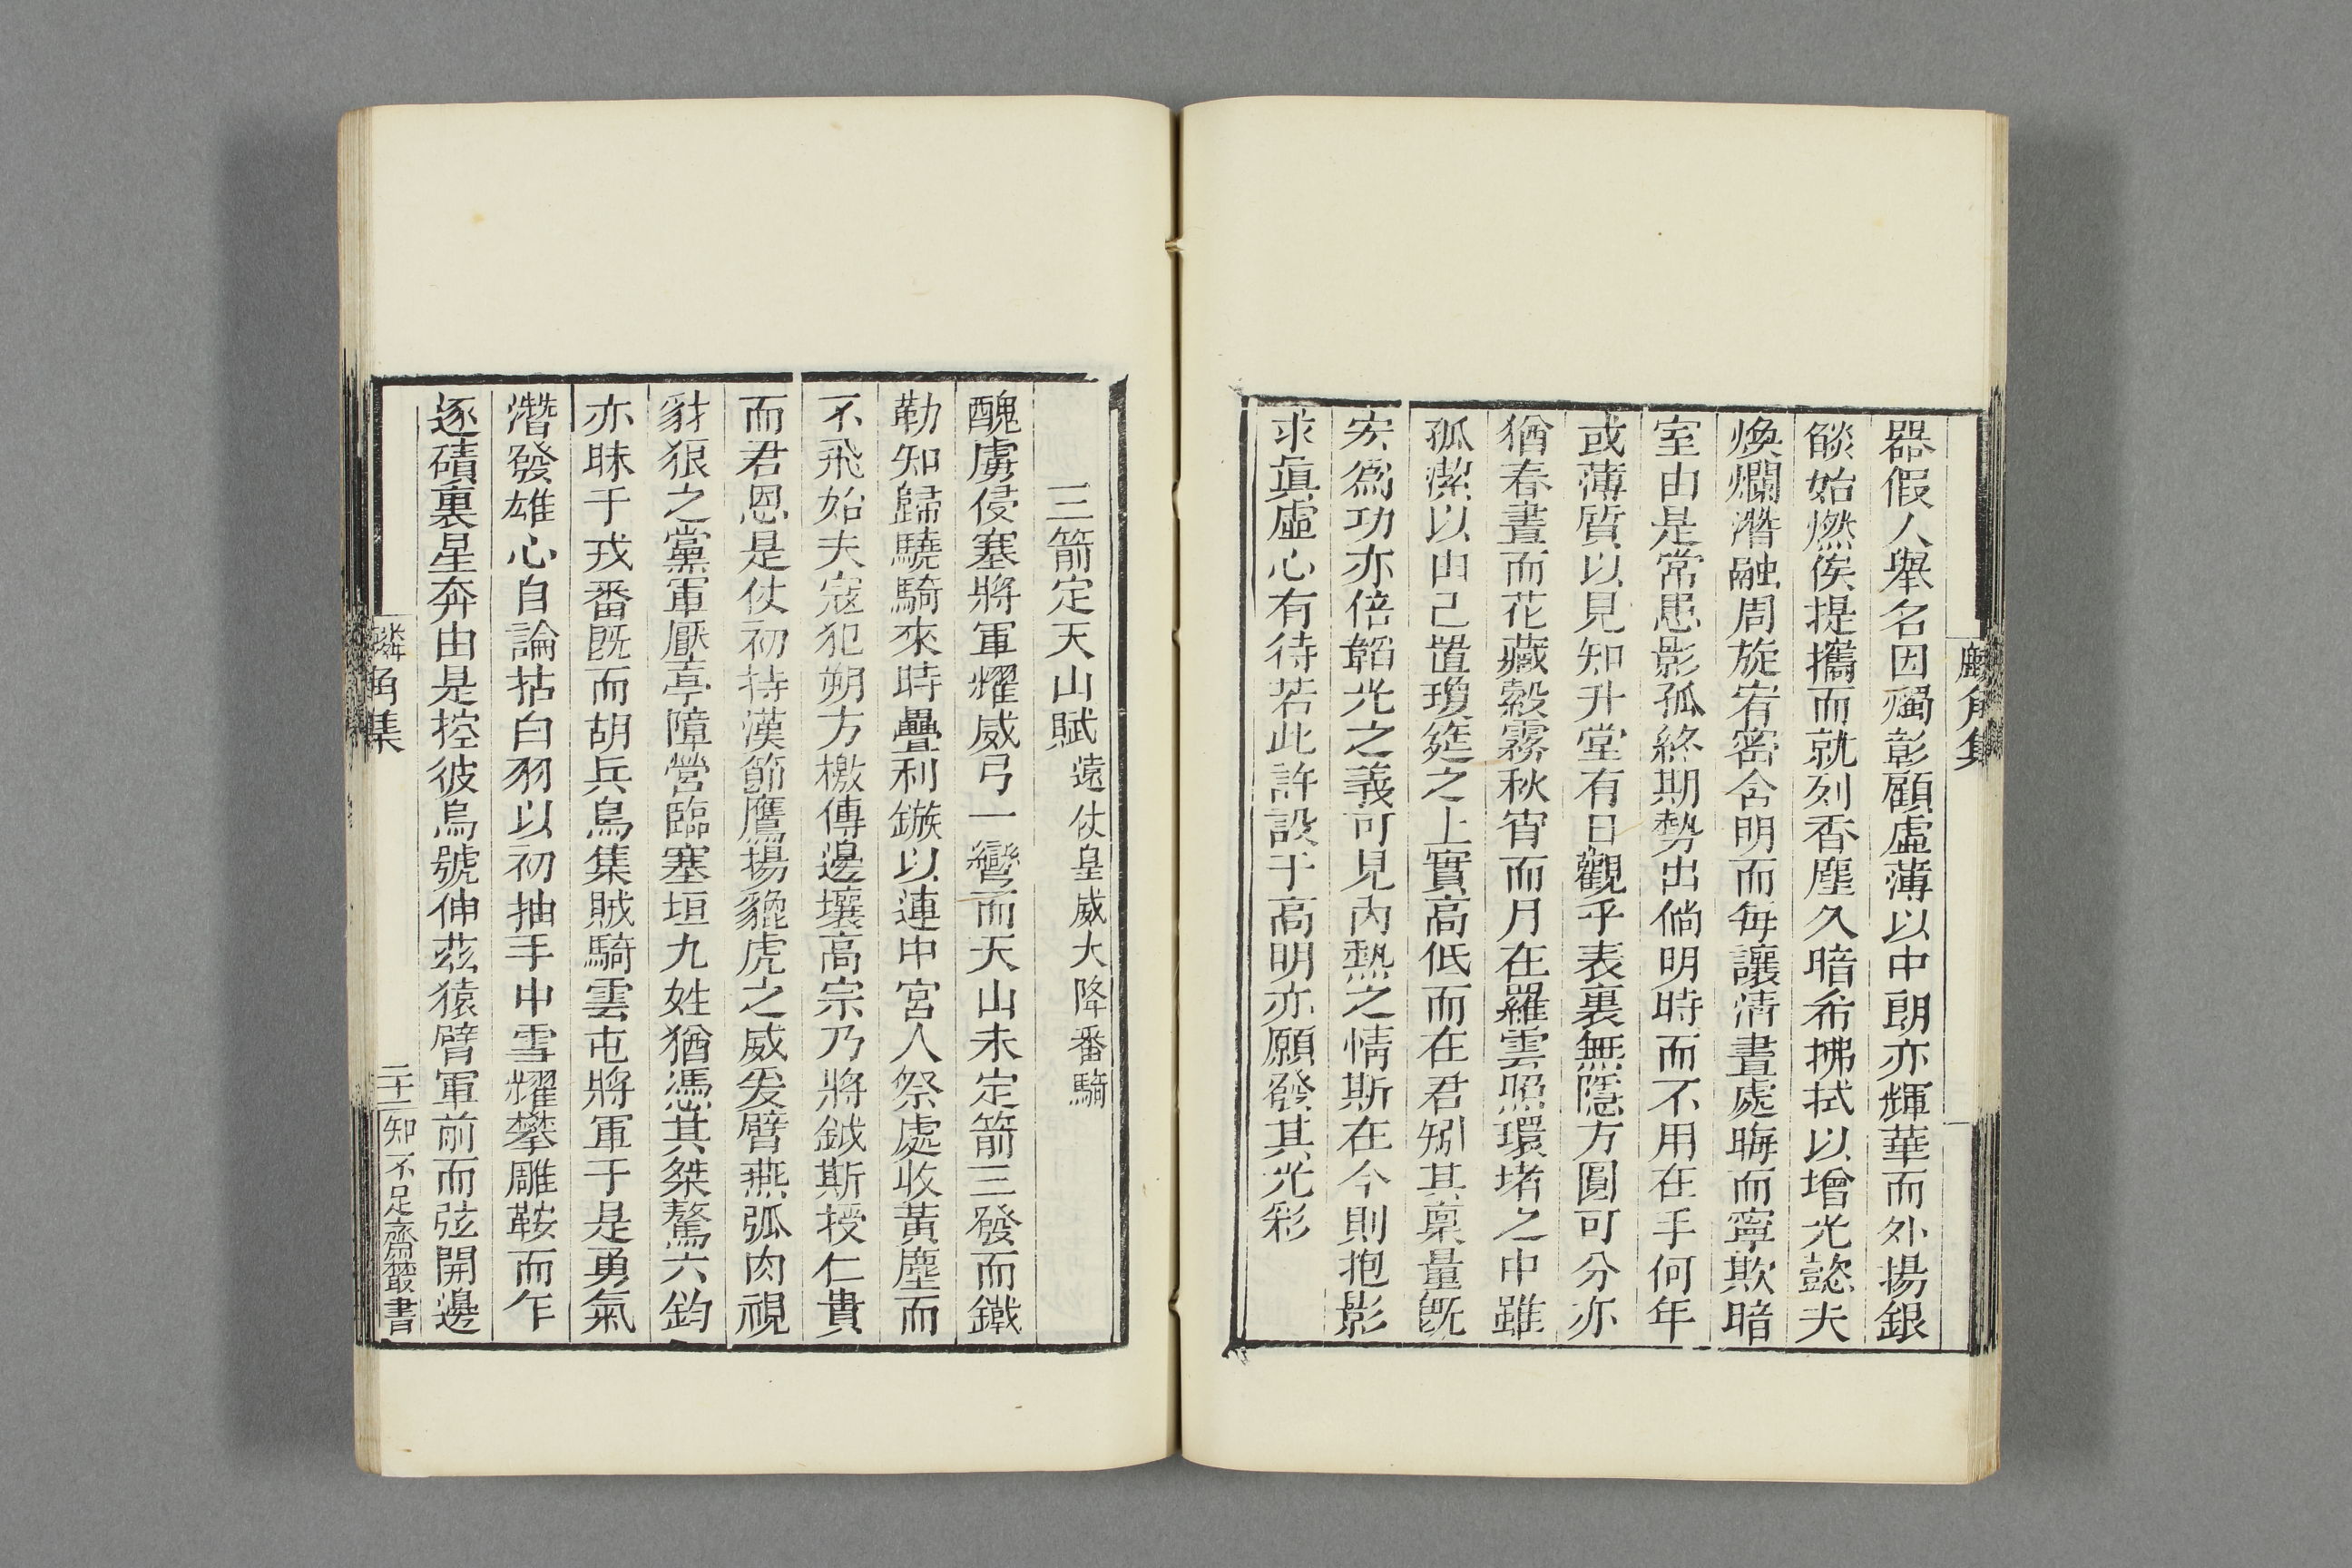 麟角集
器假人舉名因燭彰顧虛薄以中朗亦輝華而外揚銀
燄始燃俟提攜而就列香塵久暗希拂拭以增光懿夫
煥爛潛融周旋宥密含明而每讓清晝處晦而寧欺暗
室由是常患影孤終期勢出倘明時而不用在手何年
或薄質以見知升堂有日觀乎表裏無隱方圓可分亦
猶春晝而花藏縠霧秋宵而月在羅雲照環堵之中雖
孤潔以由己置瓊筵之上實高低而在君矧其稟量旣
宏為功亦倍韜光之義可見內熱之情斯在今則抱影
求眞虛心有待若此許設于高明亦願發其光彩
三箭定天山賦遠仗皇威大降番騎
醜虜侵塞將軍耀威弓一彎而天山未定箭三發而鐵
勒知歸驍騎來時疊利鏃以連中宮人祭處收黃塵而
不飛始夫寇犯朔方檄傳邊壤高宗乃將鉞斯授仁貴
而君恩是仗初持漢節鷹揚貔虎之威爰臂燕弧肉視
豺狼之黨軍壓亭障營臨塞垣九姓猶馮其桀驁六鈞
亦昧于戎番旣而胡兵鳥集賊騎雲屯將軍于是勇氣
潛發雄心自論拈白羽以初抽手中雪耀攀雕鞍而乍
逐磧裏星奔由是控彼烏號伸茲猿臂軍前而弦開邊
麟角集
二十二
知不足齋叢書